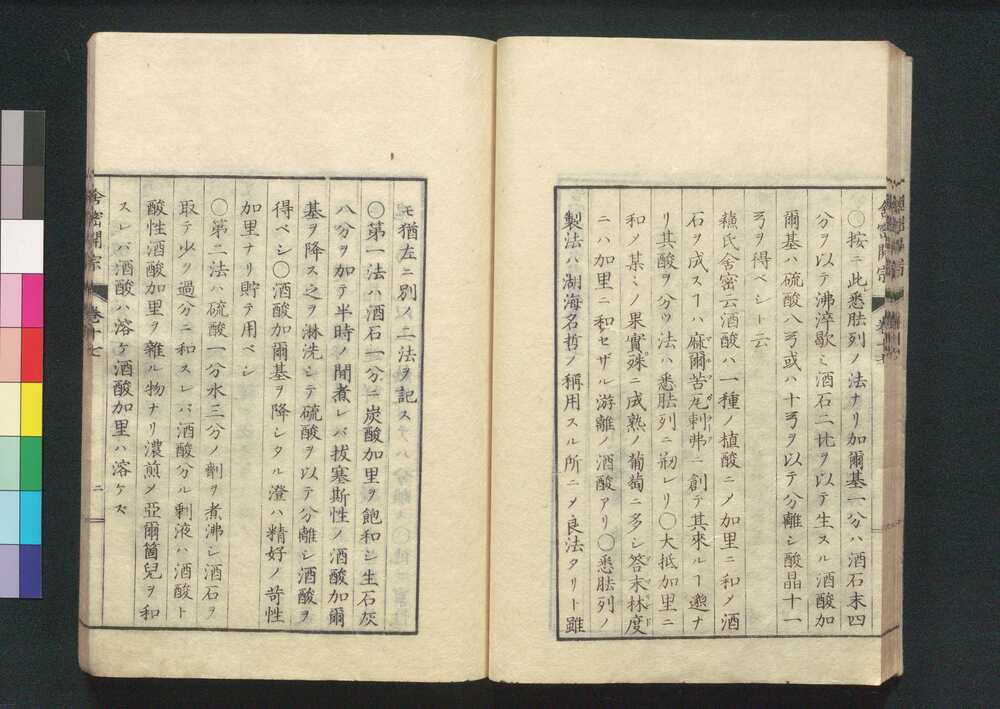 舎密開宗
○按ニ此悉䏌列ノ法ナリ加爾基一分ハ酒石末四
分ヲ以テ沸滓歇ミ酒石二比ヲ以テ生スル酒酸加
爾基ハ硫酸八弓或ハ十弓ヲ以テ分離シ酸晶十一
弓ヲ得ベシト云
氏舎密云酒酸ハ一種ノ植酸ニメ加里ニ和メ酒
石ヲ成スヿハ麻爾苦刺弗ニ創テ其來ルヿ遠ナ
リ其酸ヲ分ツ法ハ悉䏌列ニ剏レリ○大抵加里ニ
和ノ某ミノ果實殊ニ成熟ノ葡萄ニ多シ答末林度
ニハ加里ニ和セザル游離ノ酒酸アリ○悉䏌列ノ
製法ハ湖海名哲ノ稱用スル所ニメ良法タリト雖
モ猶左ニ別ノ二法ヲ記ス
○第一法ハ酒石一分ニ炭酸加里ヲ飽和シ生石灰
八分ヲ加テ半時ノ間煮レバ抜塞斯性ノ酒酸加爾
基ヲ降ス之ヲ淋洗シテ硫酸ヲ以テ分離シ酒酸ヲ
得ベシ○酒酸加爾基ヲ降シタル澄ハ精好ノ苛性
加里ナリ貯テ用ベシ
○第二法ハ硫酸一分水三分ノ劑ヲ煮沸シ酒石ヲ
取テ少ク過分ニ和スレバ酒酸分ル剰液ハ酒酸ト
酸性酒酸加里ヲ雜ル物ナリ濃煎メ亞爾箇兒ヲ和
スレバ酒酸ハ溶ケ酒酸加里ハ溶ケズ
舎密開宗 巻十七 二